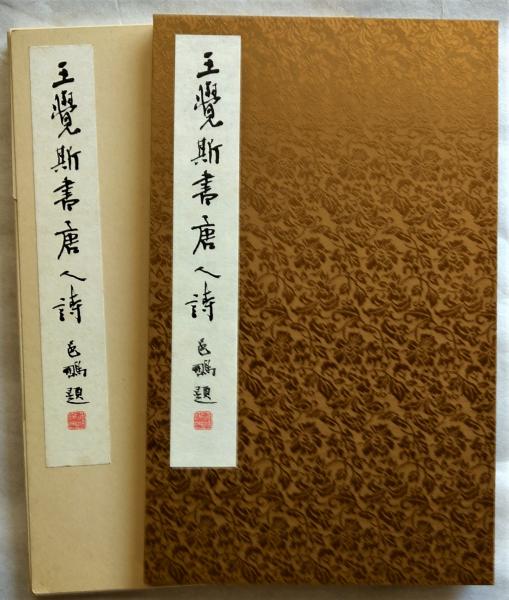 王覺斯書唐人詩
題
王覺斯書唐人詩
題